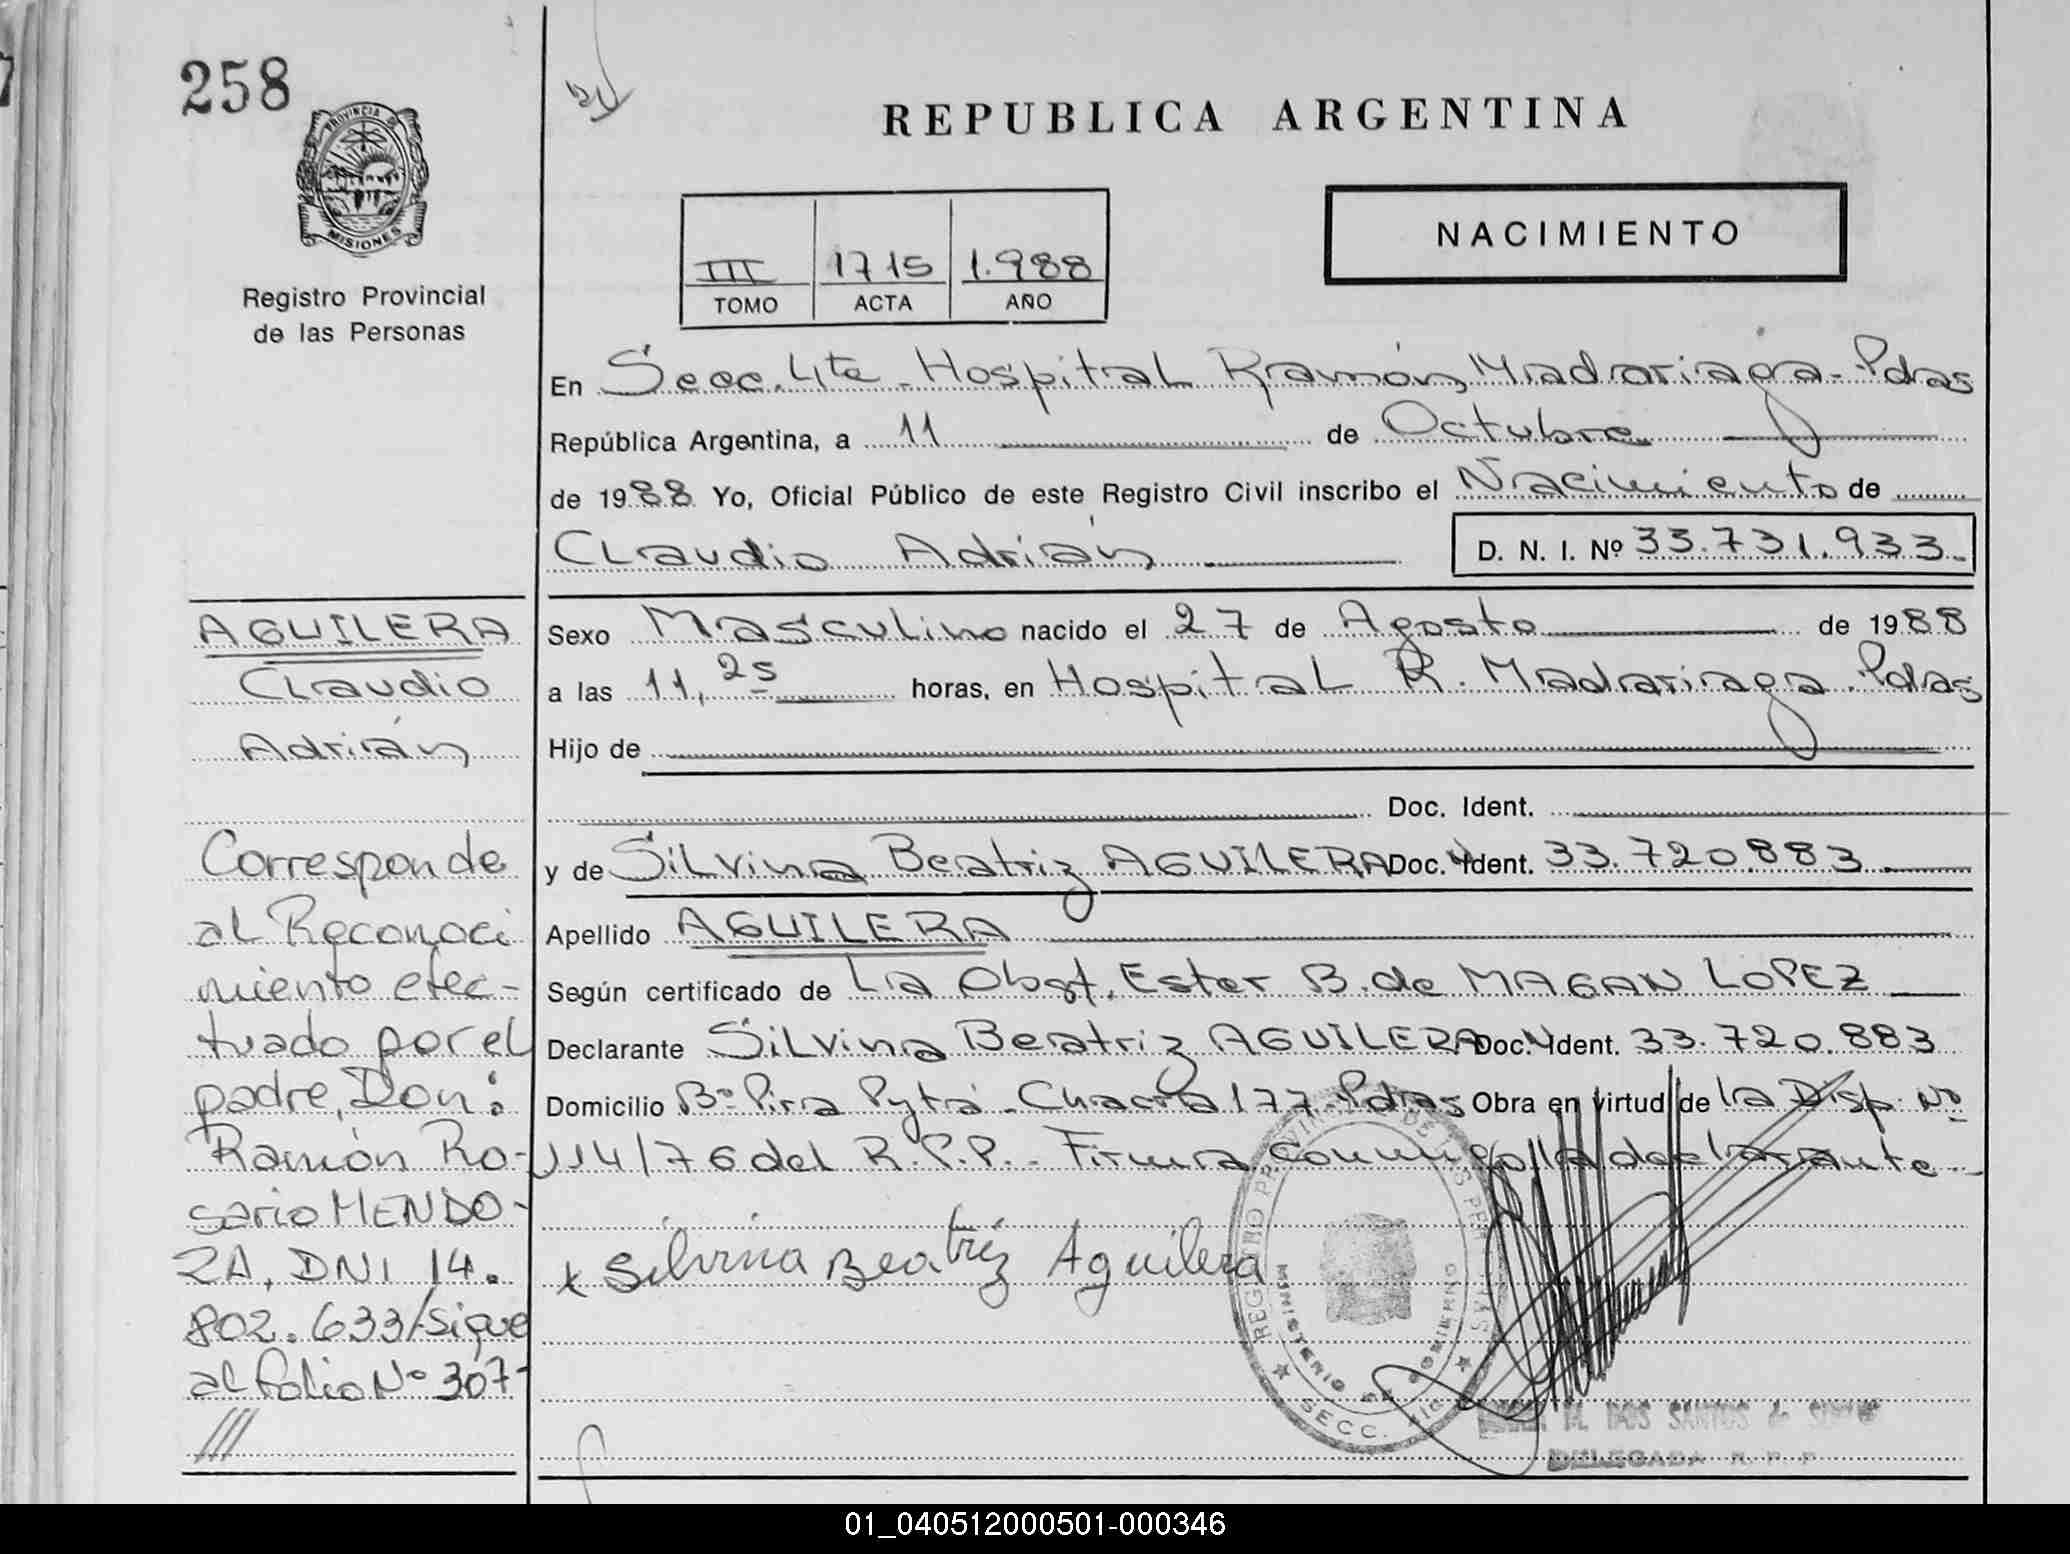 258
PROVINCIA DE
MISIONES
Registro Provincial
de las Personas
REPUBLICA ARGENTINA
NACIMIENTO
III 1715 1.988
TOMO ACTA AÑO
En Secc. 4ta - Hospital Ramón Madariaga - Pdas
República Argentina, a 11 de Octubre
de 1988 Yo, Oficial Público de este Registro Civil inscribo el Nacimiento de
Claudio Adrián
D. N. I. Nº 33.731.933.-
AGUILERA
Claudio
Adrián
Sexo Masculino nacido el 27 de Agosto de 1988
a las 11,25 horas, en Hospital R. Madariaga. Pdas
Hijo de
Doc. Ident.
y de Silvina Beatriz AGUILERA Doc. Ident. 33.720.883.
Apellido AGUILERA
Según certificado de La Obst. Ester B. de MAGAN LOPEZ
Declarante Silvina Beatriz AGUILERA Doc. Ident. 33.720.883
Domicilio Bº Pira Pytá - Chacra 177 - Pdas Obra en virtud de la Disp. Nº
114/76 del R.P.P. - Firma conmigo la declarante -
Silvina Beatriz Aguilera
Corresponde
al Reconoci
miento efec-
tuado por el
padre, Don:
Ramón Ro-
sario MENDO-
ZA, DNI 14.
802.633/Sigue
al folio Nº 307-
MINISTERIO DE GOBIERNO
SECC.
DOS SANTOS de
DELEGADA R. P. P.
01_040512000501-000346